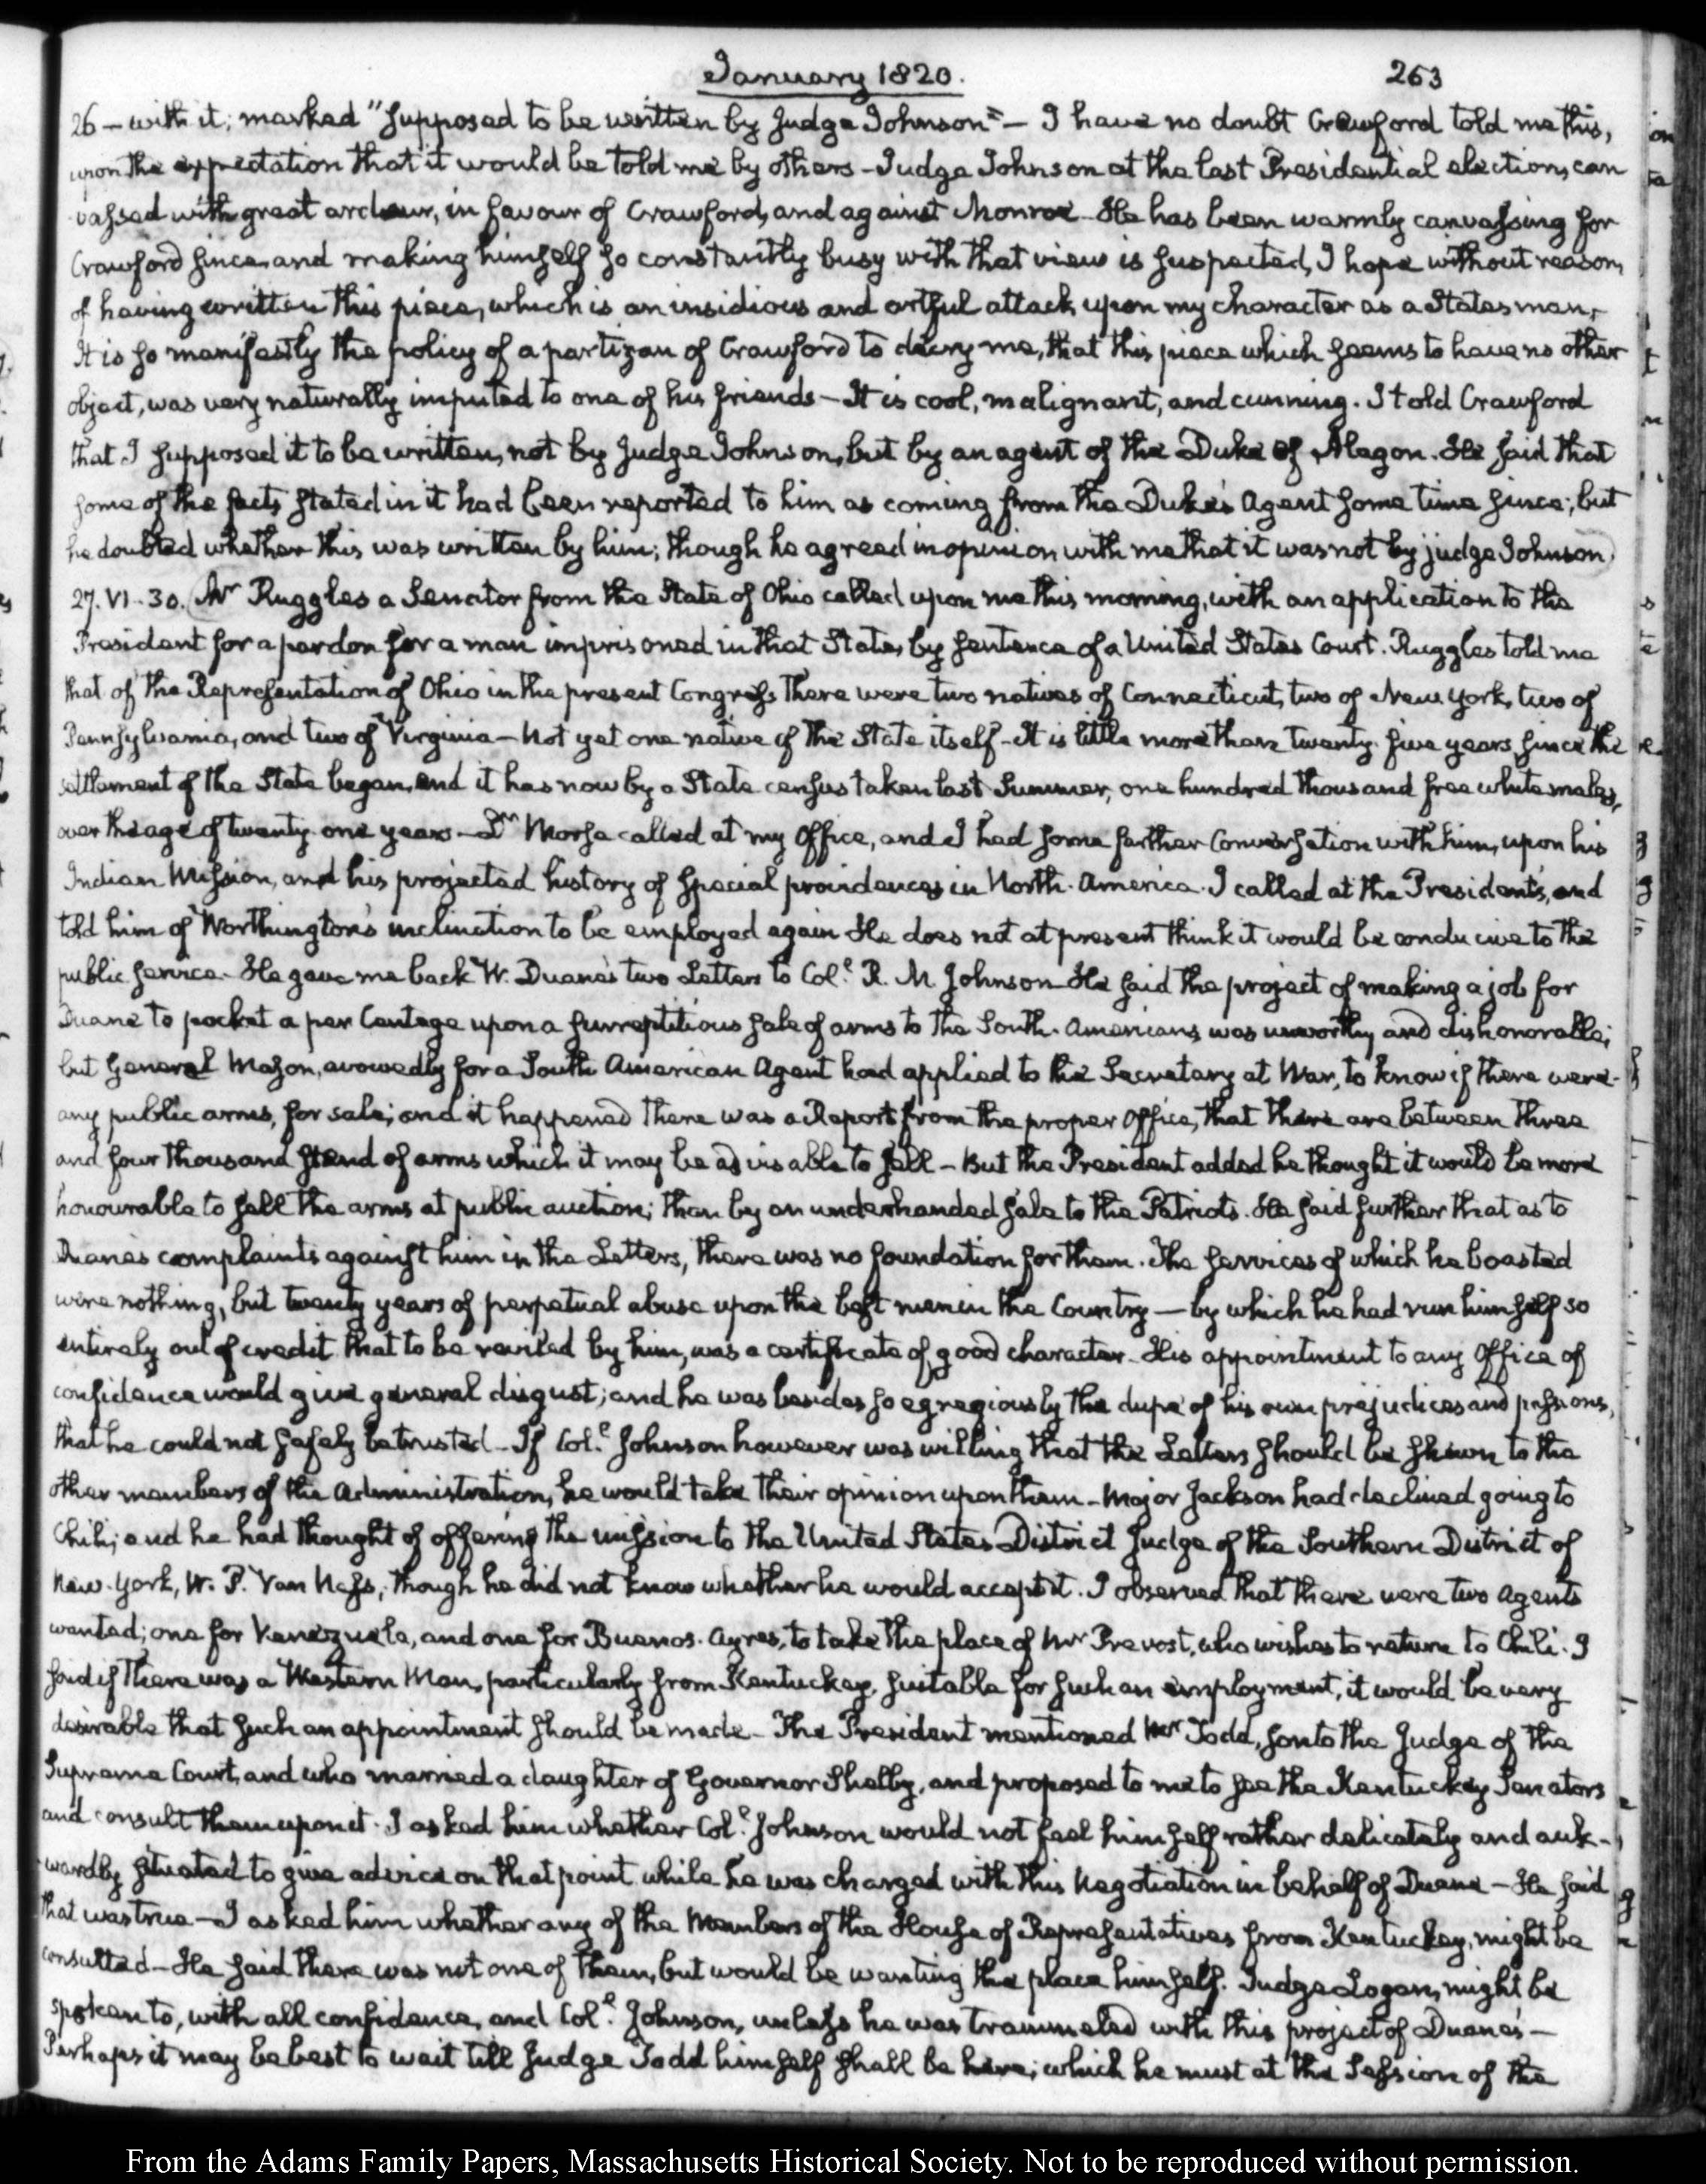 January 1820. 263
26 — with it; marked "Supposed to be written by Judge Johnson" — I have no doubt Crawford told me this,
upon the expectation that it would be told me by others — Judge Johnson at the last Presidential election, can
vassed with great ardour, in favour of Crawford, and against Monroe. He has been warmly canvassing for
Crawford since, and making himself so constantly busy with that view is suspected, I hope without reason,
of having written this piece, which is an insidious and artful attack upon my character as a Statesman,—
It is so manifestly the policy of a partizan of Crawford to decry me, that this piece which seems to have no other
object, was very naturally imputed to one of his friends — It is cool, malignant, and cunning. I told Crawford
that I supposed it to be written, not by Judge Johnson, but by an agent of the Duke of Alagon. He said that
some of the facts stated in it had been reported to him as coming from the Duke's Agent some time since; but
he doubted whether this was written by him; though he agreed in opinion with me that it was not by judge Johnson.
27. VI. 30. Mr Ruggles a Senator from the State of Ohio called upon me this morning, with an application to the
President for a pardon for a man imprisoned in that State, by sentence of a United States Court. Ruggles told me
that of the Representation of Ohio in the present Congress there were two natives of Connecticut, two of New York, two of
Pennsylvania, and two of Virginia — Not yet one native of the State itself — It is little more than twenty-five years since the
settlement of the State began, and it has now by a State census taken last Summer, one hundred thousand free white males,
over the age of twenty-one years — Dr Morse called at my Office, and I had some farther Conversation with him, upon his
Indian Mission, and his projected history of special providences in North-America. I called at the President's, and
told him of Worthington's inclination to be employed again He does not at present think it would be conducive to the
public service. He gave me back W. Duane's two Letters to Coll. R. M Johnson — He said the project of making a job for
Duane to pocket a per Centage upon a surreptitious sale of arms to the South-Americans, was unworthy and dishonorable;
but General Mason, avowedly for a South American Agent had applied to the Secretary at War, to know if there were
any public arms, for sale; and it happened there was a Report from the proper Office, that there are between three
and four thousand stand of arms which it may be advisable to sell — But the President added he thought it would be more
honourable to sell the arms at public auction; than by an underhanded sale to the Patriots. He said further that as to
Duane's complaints against him in the Letters, there was no foundation for them. The services of which he boasted
were nothing, but twenty years of perpetual abuse upon the best men in the Country — by which he had run himself so
entirely out of credit that to be reviled by him, was a certificate of good character — His appointment to any Office of
confidence would give general disgust; and he was besides so egregiously the dupe of his own prejudices and passions,
that he could not safely be trusted — If Coll. Johnson however was willing that the Letters should be shewn to the
other members of the Administration, he would take their opinion upon them — Major Jackson had declined going to
Chili; and he had thought of offering the mission to the United States District Judge of the Southern District of
New-York, W. P. Van Ness; though he did not know whether he would accept it. I observed that there were two Agents
wanted; one for Venezuela, and one for Buenos-Ayres, to take the place of Mr Prevost, who wishes to return to Chili. I
said if there was a Western Man, particularly from Kentuckey, suitable for such an employment, it would be very
desirable that such an appointment should be made — The President mentioned Mr Todd, son to the Judge of the
Supreme Court, and who married a daughter of Governor Shelby, and proposed to me to see the Kentuckey Senators
and consult them upon it. I asked him whether Coll. Johnson would not feel himself rather delicately and auk-
wardly situated to give advice on that point while he was charged with this Negotiation in behalf of Duane — He said
that was true — I asked him whether any of the Members of the House of Representatives from Kentuckey, might be
consulted — He said there was not one of them, but would be wanting the place himself. Judge Logan, might be
spoken to, with all confidence, and Coll. Johnson, unless he was trammeled with this project of Duane's —
Perhaps it may be best to wait till Judge Todd himself shall be here; which he must at the Session of the
From the Adams Family Papers, Massachusetts Historical Society. Not to be reproduced without permission.